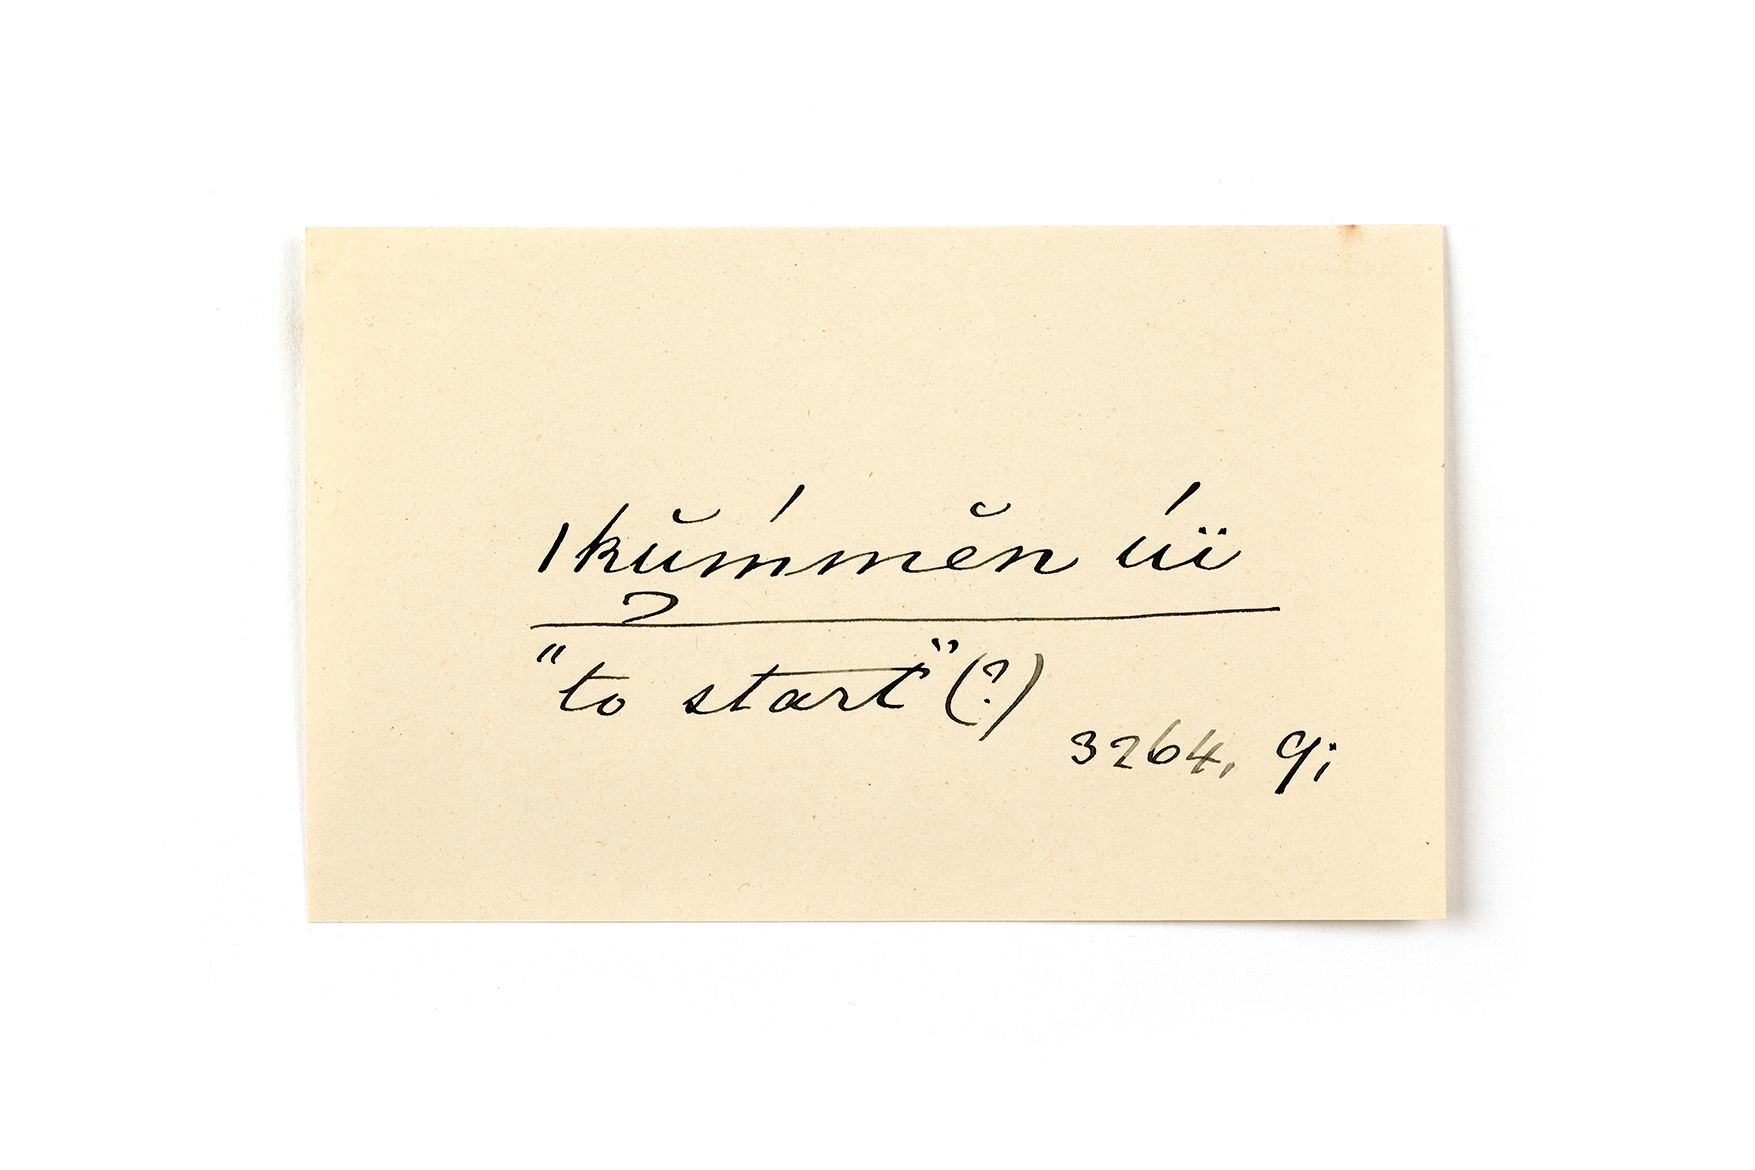 ıkŭḿmĕn úï
?
"to start" (?)
3264, 9;